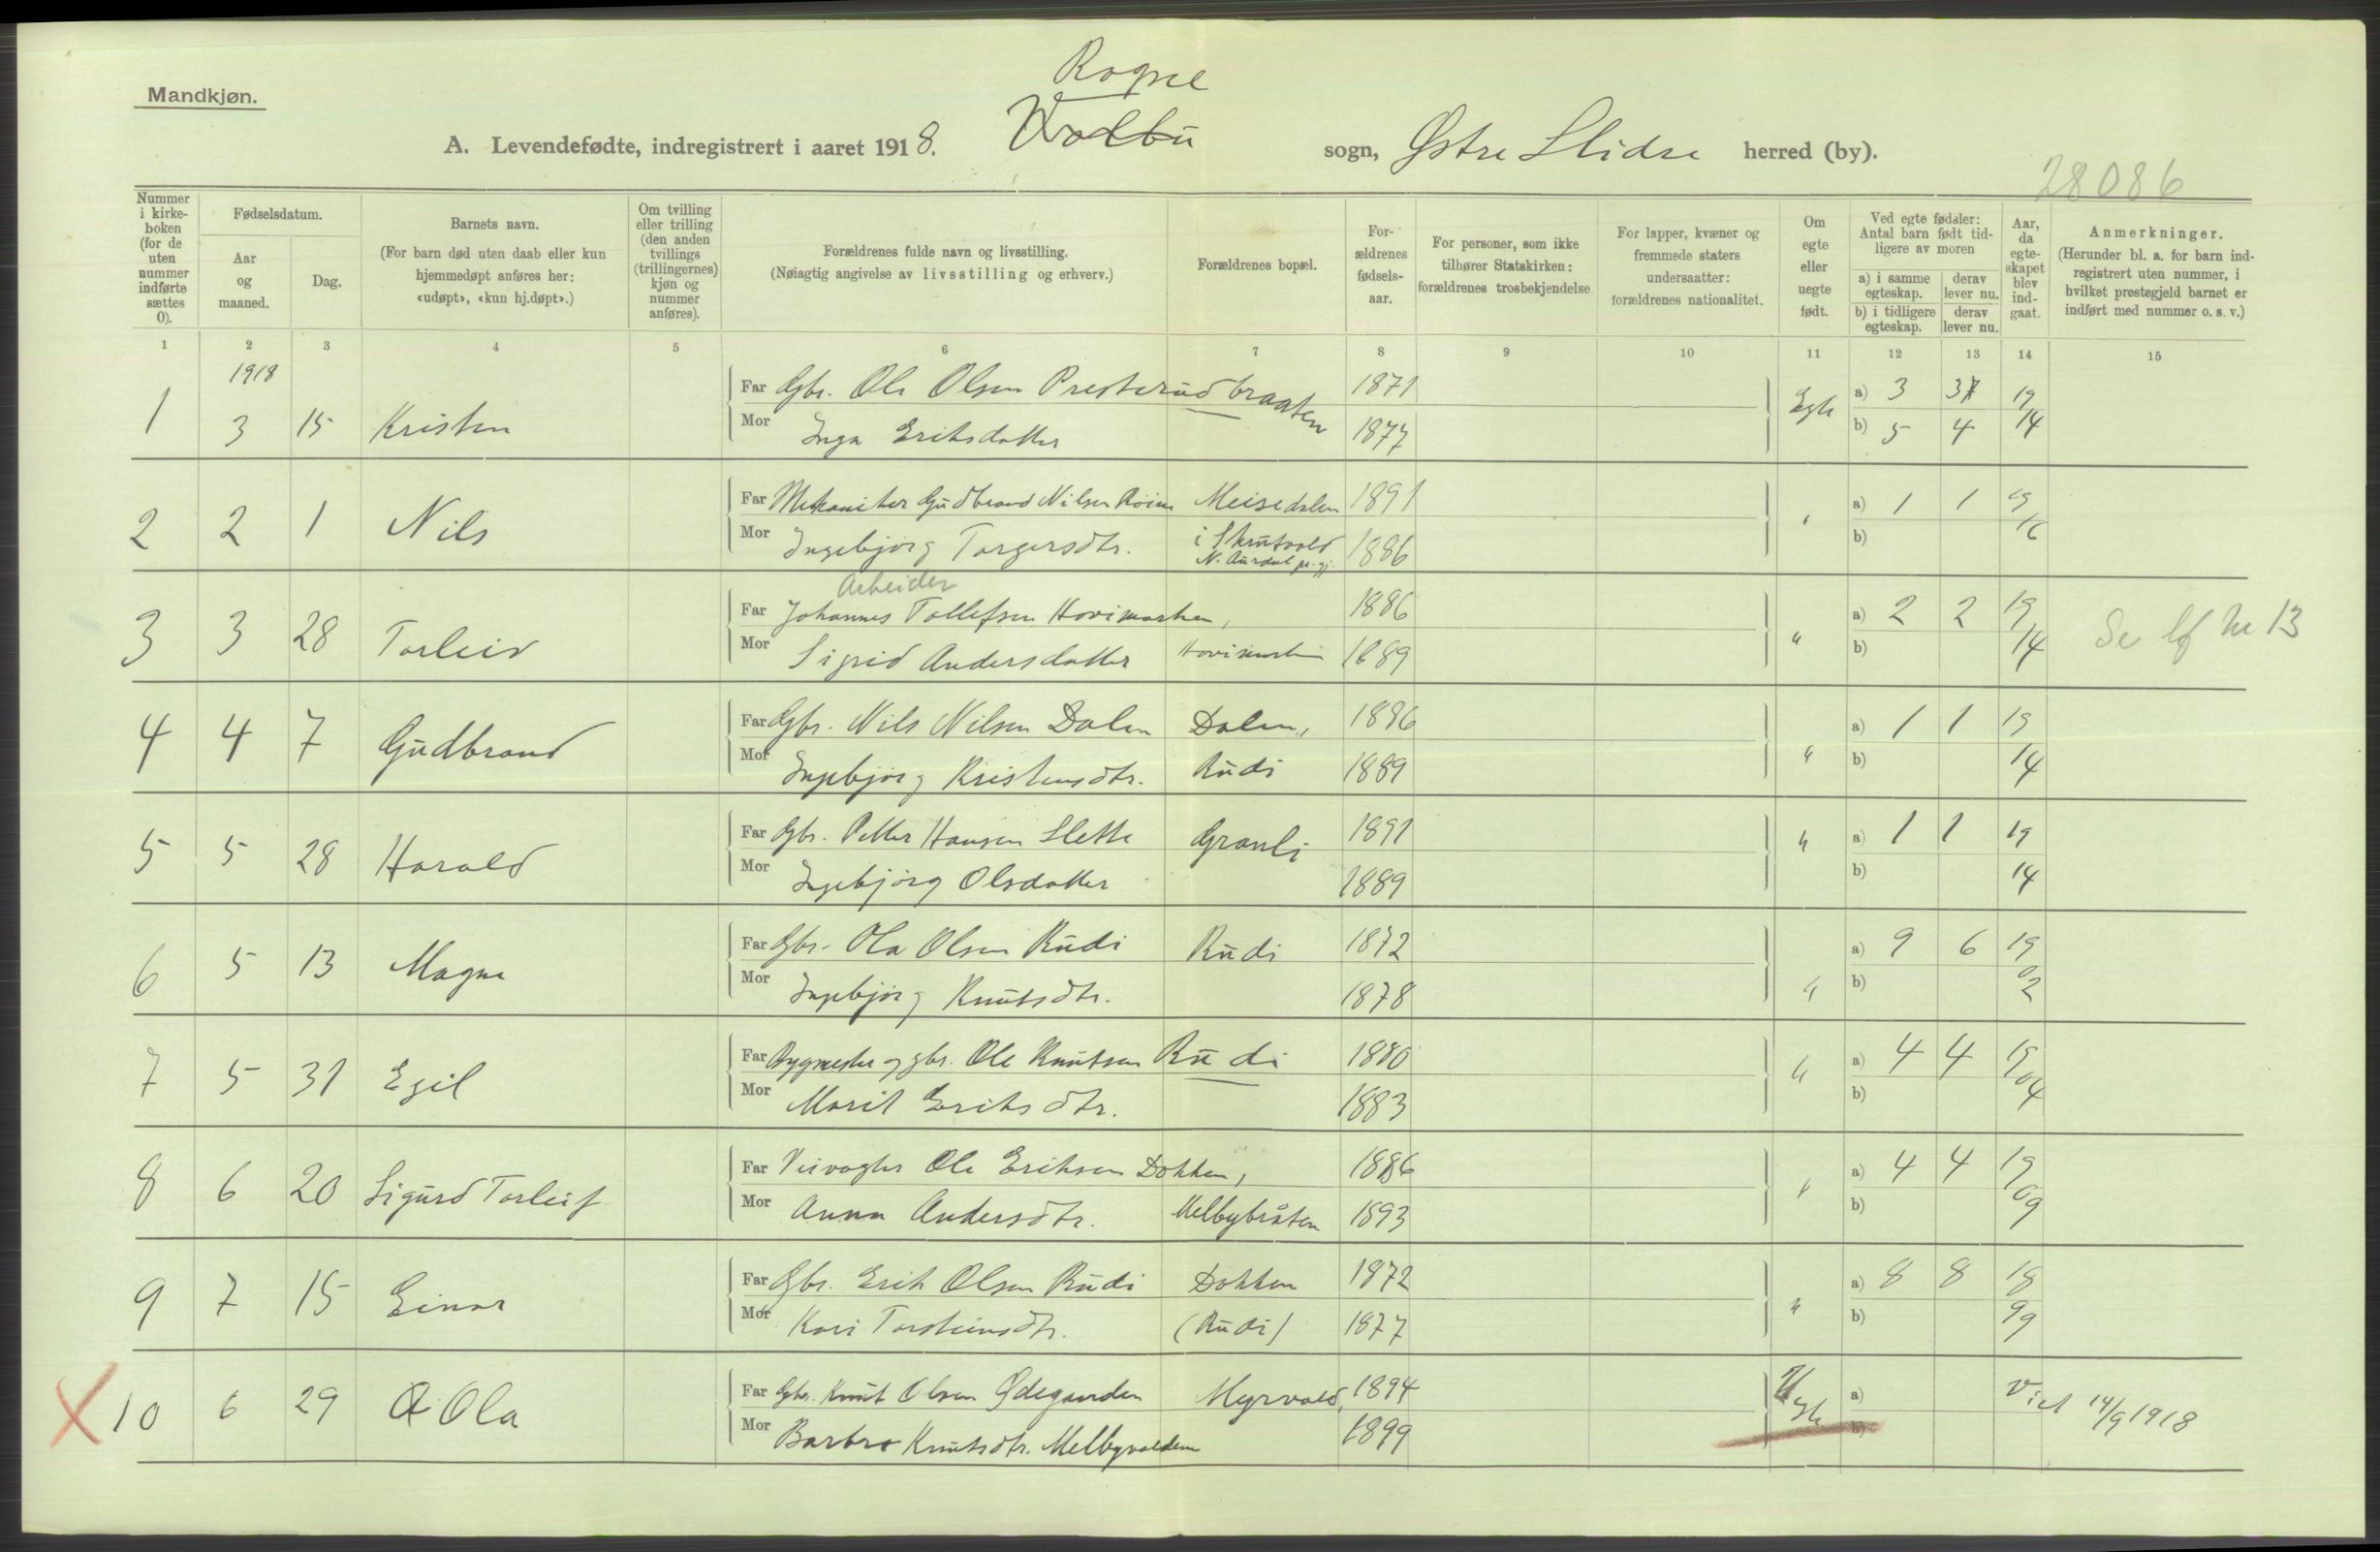 Mandkjøn.
Rogne
A. Levendefødte, indregistrert i aaret 1918. Volbu sogn, Østre Slidre herred (by).
28086
Nummer i kirkeboken (for de uten nummer indførte sættes 0).
Fødselsdatum.
Aar og maaned.
Dag.
Barnets navn.
(For barn død uten daab eller kun hjemmedøpt anføres her: «udøpt», «kun hj.døpt».)
Om tvilling eller trilling (den anden tvillings (trillingernes) kjøn og nummer anføres).
Forældrenes fulde navn og livsstilling.
(Nøiagtig angivelse av livsstilling og erhverv.)
Forældrenes bopæl.
For-ældrenes fødsels-aar.
For personer, som ikke tilhører Statskirken: forældrenes trosbekjendelse
For lapper, kvæner og fremmede staters undersaatter: forældrenes nationalitet.
Om egte eller uegte født.
Ved egte fødsler: Antal barn født tidligere av moren
a) i samme egteskap. derav lever nu.
b) i tidligere egteskap. derav lever nu.
Aar, da egte-skapet blev ind-gaat.
Anmerkninger.
(Herunder bl. a. for barn ind-registrert uten nummer, i hvilket prestegjeld barnet er indført med nummer o. s. v.)
1 2 3 4 5 6 7 8 9 10 11 12 13 14 15
1918
1 3 15 Kristen Far Gbr. Ole Olsen Presterudbraaten 1871 Egte a) 3 3 19
Mor Inga Eriksdatter 1877 b) 5 4 14
2 2 1 Nils Far Mekaniker Gudbrand Nilsen Roine Meisedalen 1891 " a) 1 1 19
Mor Ingebjørg Torgersdtr. i Skrutvold N. Aurdal pr.gj. 1886 b) 16
Arbeider
3 3 28 Torleiv Far Johannes Tollefsen Hovimarken, 1886 " a) 2 2 19 Se lf nr 13
Mor Sigrid Andersdatter Hovimarken 1889 b) 14
4 4 7 Gudbrand Far Gbr. Nils Nilsen Dalen Dalen, 1886 " a) 1 1 19
Mor Ingebjørg Kristensdtr. Rudi 1889 b) 14
5 5 28 Harald Far Gbr. Petter Hansen Slette Granli 1891 " a) 1 1 19
Mor Ingebjørg Olsdatter 1889 b) 14
6 5 13 Magne Far Gbr. Ola Olsen Rudi Rudi 1872 " a) 9 6 19
Mor Ingebjørg Knutsdtr. 1878 b) 02
7 5 31 Egil Far Bygmester og gbr. Ole Knutsen Rudi 1880 " a) 4 4 19
Mor Marit Eriksdtr. 1883 b) 04
8 6 20 Sigurd Torleif Far Veivogter Ole Eriksen Dokken, 1886 " a) 4 4 19
Mor Anna Andersdtr. Melbybråten 1893 b) 09
9 7 15 Einar Far Gbr. Erik Olsen Rudi Dokken 1872 " a) 8 8 18
Mor Kari Torsteinsdtr. (Rudi) 1877 b) 99
10 6 29 Ola Far Gbr. Knut Olsen Ødegaarden Myrvold, 1894 Uegte a) Viet 14/9 1918
Mor Barbro Knutsdtr. Melbyvolden 1899 b)